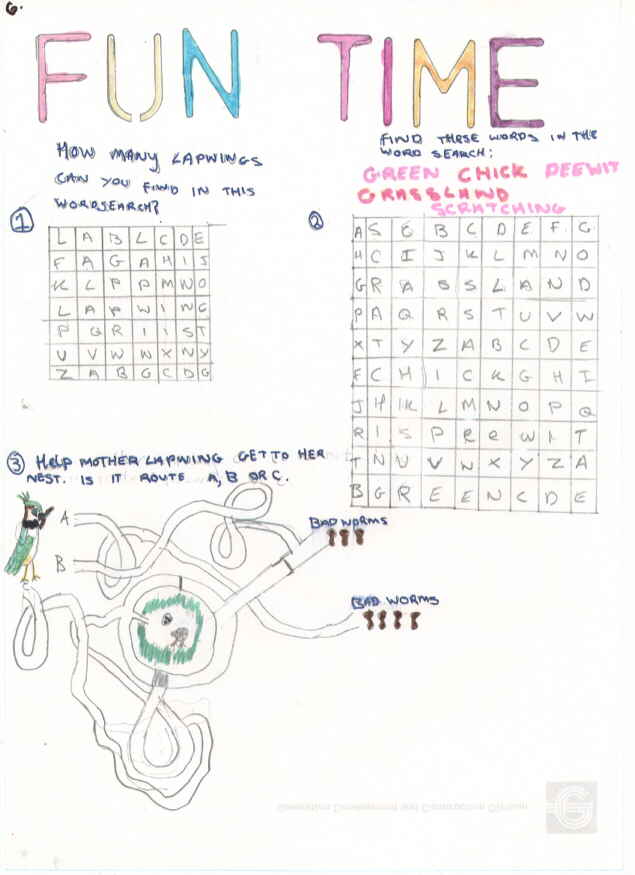 6.
FUN TIME
HOW MANY LAPWINGS
CAN YOU FIND IN THIS
WORDSEARCH?
①
L A B L C D E
F A G A H I J
K L P P M N O
L A P W I N G
P Q R I I S T
U V W N X N Y
Z A B G C D G
FIND THESE WORDS IN THE
WORD SEARCH:
GREEN CHICK PEEWIT
GRASSLAND
SCRATCHING
②
A S E B C D E F G
H C I J K L M N O
G R A S S L A N D
P A Q R S T U V W
X T Y Z A B C D E
F C H I C K G H I
J H K L M N O P Q
R I S P E E W I T
T N U V W X Y Z A
B G R E E N C D E
③ HELP MOTHER LAPWING GET TO HER
NEST. IS IT ROUTE A, B OR C.
A
B
C
BAD WORMS
BAD WORMS